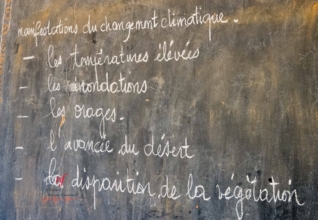 manifestations du changement climatique.
- les températures élevées
- les inondations
- les orages.
- l'avancée du désert
- la disparition de la végétation